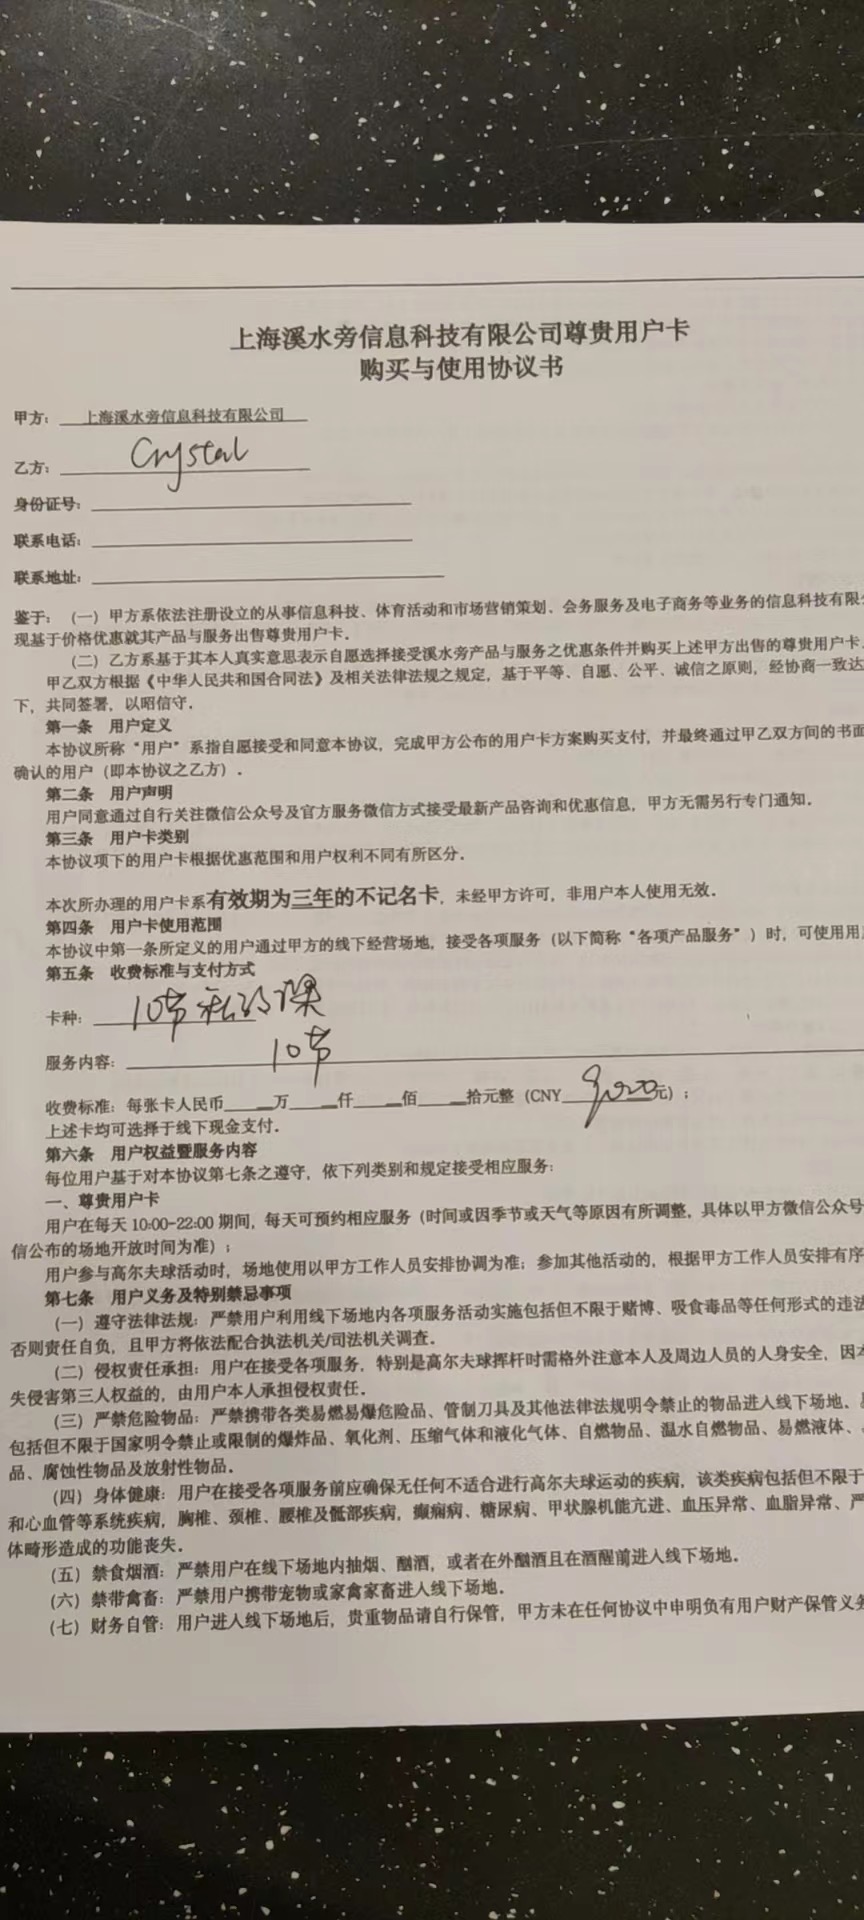 上海溪水旁信息科技有限公司尊贵用户卡
购买与使用协议书
甲方：上海溪水旁信息科技有限公司
乙方：Crystal
身份证号：
联系电话：
联系地址：
鉴于：（一）甲方系依法注册设立的从事信息科技、体育活动和市场营销策划、会务服务及电子商务等业务的信息科技有限
现基于价格优惠就其产品与服务出售尊贵用户卡．
（二）乙方系基于其本人真实意思表示自愿选择接受溪水旁产品与服务之优惠条件并购买上述甲方出售的尊贵用户卡．
甲乙双方根据《中华人民共和国合同法》及相关法律法规之规定，基于平等、自愿、公平、诚信之原则，经协商一致达
下，共同签署，以昭信守．
第一条 用户定义
本协议所称“用户”系指自愿接受和同意本协议，完成甲方公布的用户卡方案购买支付，并最终通过甲乙双方间的书面
确认的用户（即本协议之乙方）．
第二条 用户声明
用户同意通过自行关注微信公众号及官方服务微信方式接受最新产品咨询和优惠信息，甲方无需另行专门通知．
第三条 用户卡类别
本协议项下的用户卡根据优惠范围和用户权利不同有所区分．
本次所办理的用户卡系有效期为三年的不记名卡，未经甲方许可，非用户本人使用无效．
第四条 用户卡使用范围
本协议中第一条所定义的用户通过甲方的线下经营场地，接受各项服务（以下简称“各项产品服务”）时，可使用用
第五条 收费标准与支付方式
卡种：10节私教课
服务内容：10节
收费标准：每张卡人民币 万 仟 佰 拾元整（CNY 元）；
上述卡均可选择于线下现金支付．
第六条 用户权益暨服务内容
每位用户基于对本协议第七条之遵守，依下列类别和规定接受相应服务：
一、尊贵用户卡
用户在每天 10:00-22:00 期间，每天可预约相应服务（时间或因季节或天气等原因有所调整，具体以甲方微信公众号
信公布的场地开放时间为准）；
用户参与高尔夫球活动时，场地使用以甲方工作人员安排协调为准；参加其他活动的，根据甲方工作人员安排有序
第七条 用户义务及特别禁忌事项
（一）遵守法律法规：严禁用户利用线下场地内各项服务活动实施包括但不限于赌博、吸食毒品等任何形式的违法
否则责任自负，且甲方将依法配合执法机关/司法机关调查．
（二）侵权责任承担：用户在接受各项服务，特别是高尔夫球挥杆时需格外注意本人及周边人员的人身安全，因本
失侵害第三人权益的，由用户本人承担侵权责任．
（三）严禁危险物品：严禁携带各类易燃易爆危险品、管制刀具及其他法律法规明令禁止的物品进入线下场地．
包括但不限于国家明令禁止或限制的爆炸品、氧化剂、压缩气体和液化气体、自燃物品、温水自燃物品、易燃液体、
品、腐蚀性物品及放射性物品．
（四）身体健康：用户在接受各项服务前应确保无任何不适合进行高尔夫球运动的疾病，该类疾病包括但不限于
和心血管等系统疾病，胸椎、颈椎、腰椎及骶部疾病，癫痫病、糖尿病、甲状腺机能亢进、血压异常、血脂异常、严
体畸形造成的功能丧失．
（五）禁食烟酒：严禁用户在线下场地内抽烟、酗酒，或者在外酗酒且在酒醒前进入线下场地．
（六）禁带禽畜：严禁用户携带宠物或家禽家畜进入线下场地．
（七）财务自管：用户进入线下场地后，贵重物品请自行保管，甲方未在任何协议中申明负有用户财产保管义务